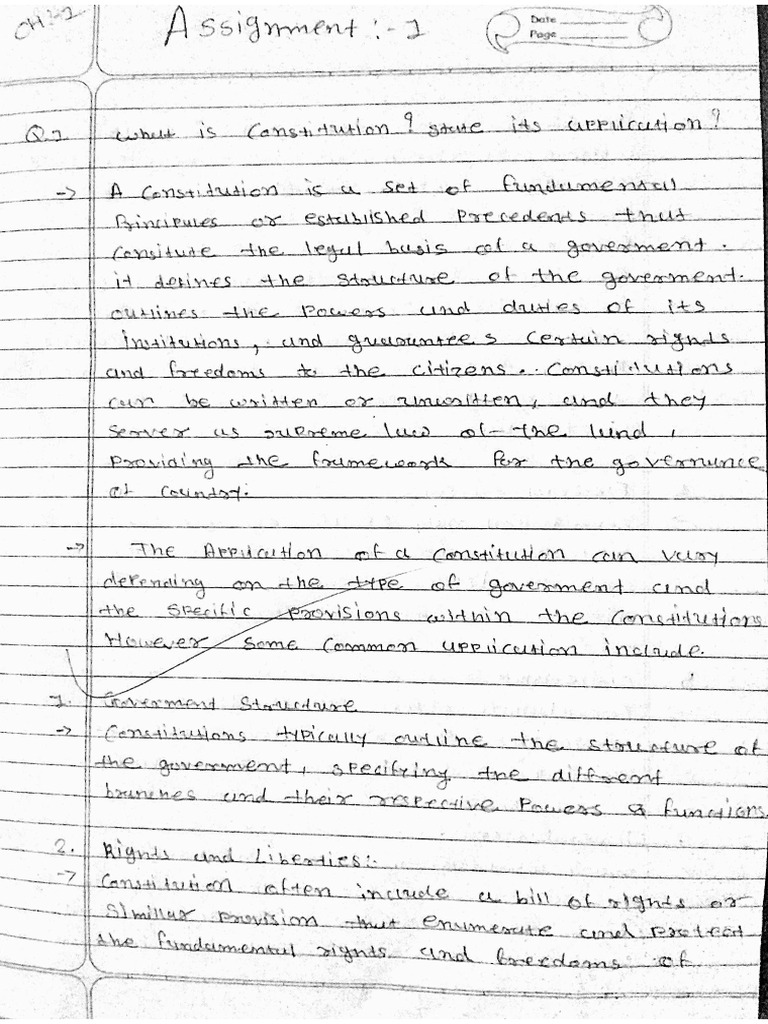 CH-1
Assignment :- 1
Date
Page
Q.1 What is Constitution? State its application?
-> A Constitution is a set of fundamental
Principules or established Precedents that
Consitute the legal basis of a goverment.
it defines the structure of the goverment.
outlines the Powers and duties of its
institutions, and guarantees certain rights
and freedoms to the citizens. Constitutions
can be written or unwritten, and they
server as supreme law of the land,
providing the framework for the governance
of country.
-> The Application of a Constitution can vary
depending on the type of goverment and
the specific provisions within the Constitutions
However some common application include.
1. Goverment Structure
-> Constitutions typically outline the structure of
the goverment, specifying the different
branches and their respective Powers & functions
2. Rights and Liberties:-
-> Constitution often include a bill of rights or
Simillar provision that enumerate and protect
the fundamental rights and freedoms of